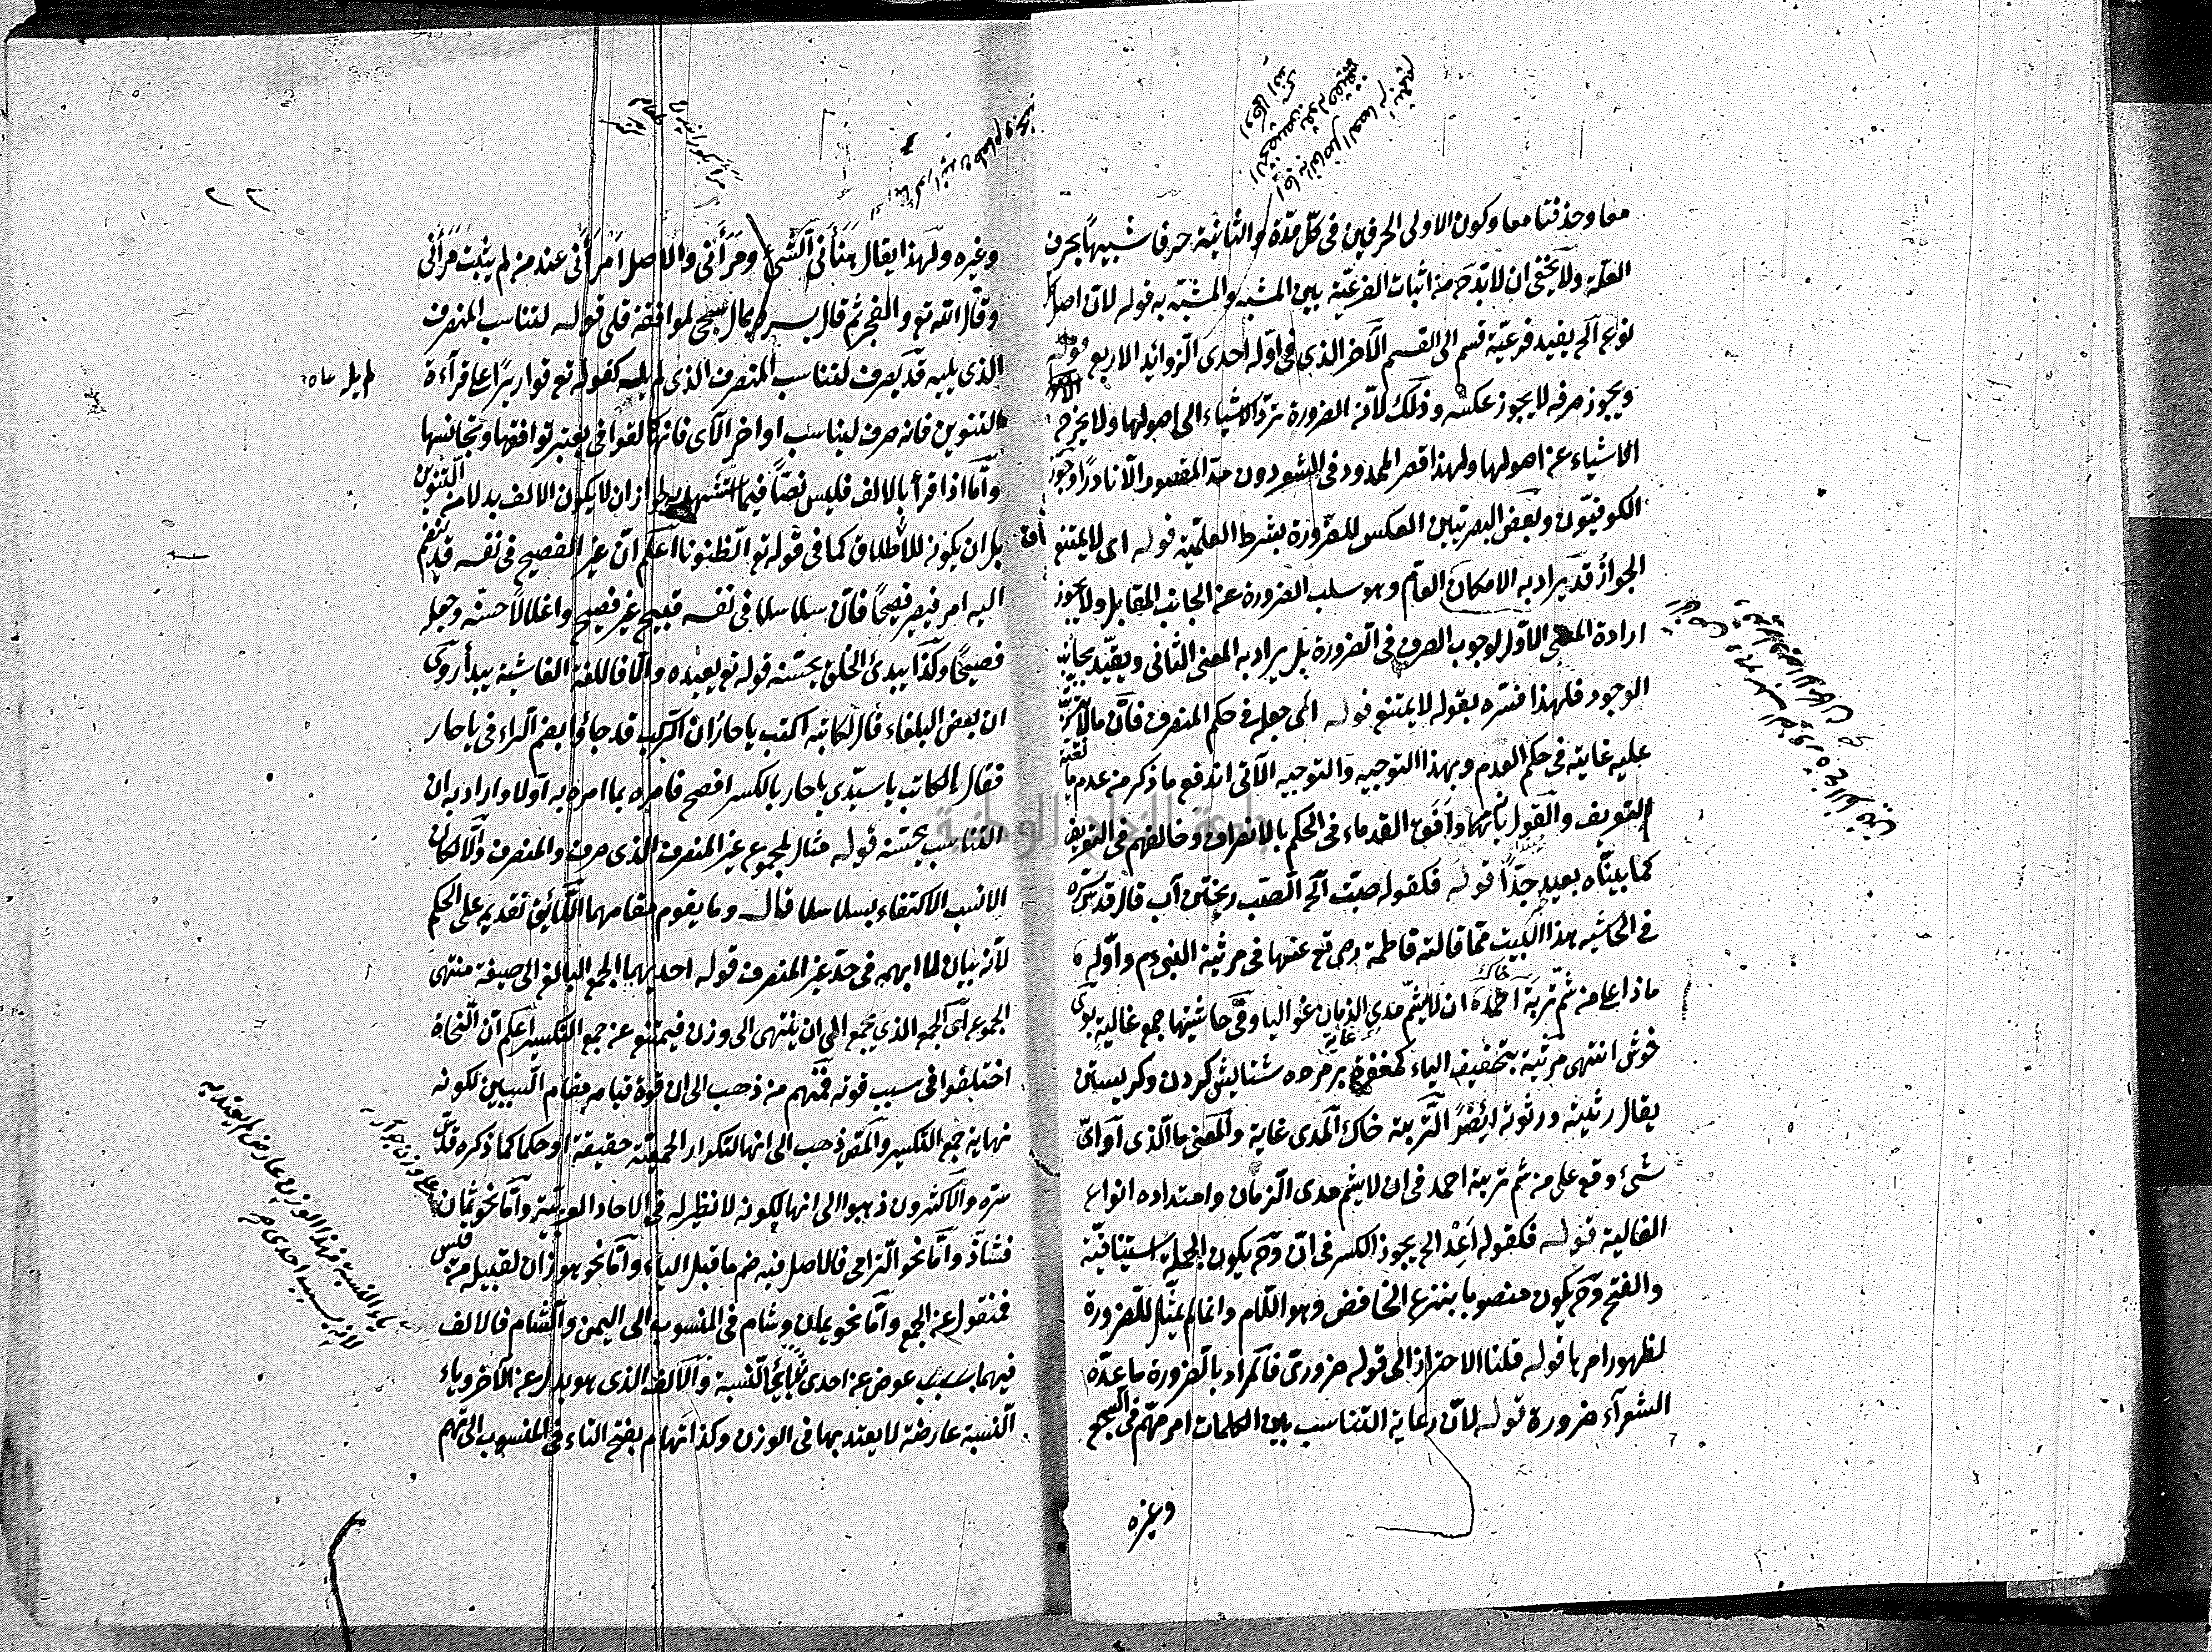 معا وحذفتا معا وكون الاولى الحرفين في كل مدة والثانية حرفا شبيها بحرف
العلة ولا يخفى ان لابد ح من اثبات الفرعية بين المشبه والمشبه به قوله لان اصل كل
نوع الخ يفيد فرعية قسم الى القسم الآخر الذي في اوله احدى الزوائد الاربع قوله
ويجوز صرفه لا يجوز عكسه وذلك لان الضرورة ترد الاشياء الى اصولها ولا يخرج
الاشياء عن اصولها ولهذا قصر الممدود في الشعر دون مد المقصور الا نادرا وجوز
الكوفيون وبعض البصريين العكس للضرورة بشرط العلمية قوله اى لا يمتنع
الجواز قد يراد به الامكان العام وهو سلب الضرورة عن الجانب المقابل ولا يجوز
ارادة المعنى الاول لوجوب الصرف في الضرورة بل يراد به المعنى الثانى ويقيد بجانب
الوجود فلهذا فسره بقوله لا يمتنع قوله اى جعله في حكم المنصرف فان ما لا يترتب
عليه غايته في حكم العدم وبهذا التوجيه والتوجيه الآتى اندفع ما ذكر من عدم
التعريف والقول بانهما وافق القدماء في الحكم بالانصراف وخالفهم في التعريف
كما بيناه بعيد جدا قوله فكقوله صبت الخ الصب ريختن آب قال قدس سره
في الحاشيه هذا البيت مما قالته فاطمة رضى تع عنها في مرثية النبى وم واوله
ماذا على من شم تربة احمد ان لا يشم مدى الزمان غواليا وفى حاشيتها جمع غالية بوى
خوش انتهى مرثية بتخفيف الياء كمغفرة بر مرده ستايش كردن وكريستن
يقال رثيته ورثوته ايضا التربة خاك المدى غاية والمعنى ما الذى او اى
شئ وقع على من شم تربة احمد في ان لا يشم مدى الزمان وامتداده انواع
الغالية قوله فكقوله اعد الخ يجوز الكسر في ان وح يكون الجملة استينافية
والفتح وح يكون منصوبا بنزع الخافض وهو اللام وانما لم يمثل للضرورة
لظهور امرها قوله قلنا الاحتراز الى قوله ضرورى فالمراد بالضرورة ما عده
الشعراء ضرورة قوله لان رعاية التناسب بين الكلمات امر مهم في السجع
وغيره
وغيره ولهذا يقال هنأنى الشئ ومرأنى والاصل امرأنى عند من لم يثبت مرأنى
وقال الله تع والفجر ثم قال يسر كمال سجى لموافقة قلى قوله لتناسب المنصرف
الذى يليه قد يصرف لتناسب المنصرف الذى لم يليه كقوله تع قواريرا على قرآءة
التنوين فانه صرف ليناسب اواخر الآى فانها كالقوافى يعتبر توافقها وتجانسها
واما اذا قرأ بالالف فليس نصا فيما استشهد به لجواز ان لا يكون الالف بدلا من التنوين
بل ان يكون للاطلاق كما في قوله تع الظنونا اعلم ان غير الفصيح في نفسه قد ينضم
اليه امر فيصير فصيحا فان سلاسلا في نفسه قبيح غير فصيح واغلالا حسنه وجعله
فصيحا وكذا يبدئ الخلق يحسنه قوله تع يعيده والا فاللغة الفاشية يبدأ روى
ان بعض البلغاء قال لكاتبه اكتب يا حار ان الترك قد جاؤا بضم الراء في يا حار
فقال الكاتب يا سيدى يا حار بالكسر افصح فامره بما امره به اولا واراد به ان
التناسب يحسنه قوله مثال لمجموع غير المنصرف الذى صرف والمنصرف والا لكان
الانسب الاكتفاء بسلاسلا قال وما يقوم مقامهما اللائق تقديم على الحكم
لانه بيان لما ابهمه في حد غير المنصرف قوله احديهما الجمع البالغ الى صيغة منتهى
الجموع اى الجمع الذى يجمع الى ان ينتهى الى وزن فيمتنع عن جمع التكسير اعلم ان النحاة
اختلفوا في سبب قوته فمنهم من ذهب الى ان قوة قيامه مقام السببين لكونه
نهاية جمع التكسير والمص ذهب الى انها لتكرار الجمعية حقيقة او حكما كما ذكره قدس
سره والاكثرون ذهبوا الى انها لكونه لا نظير له في الاحاد العربية واما نحو ثمان
فشاذ واما نحو الترامى فالاصل فيه ضم ما قبل الياء واما نحو هوازن لقبيلة من قيس
فمنقول عن الجمع واما نحو يمان وشام في المنسوب الى اليمن والشام فالالف
فيهما بسبب عوض عن احدى يائى النسبة والالف الذى هو بدل عن الآخر وياء
النسبة عارضة لا يعتد بها في الوزن وكذا تهام بفتح التاء في المنسوب الى تهم